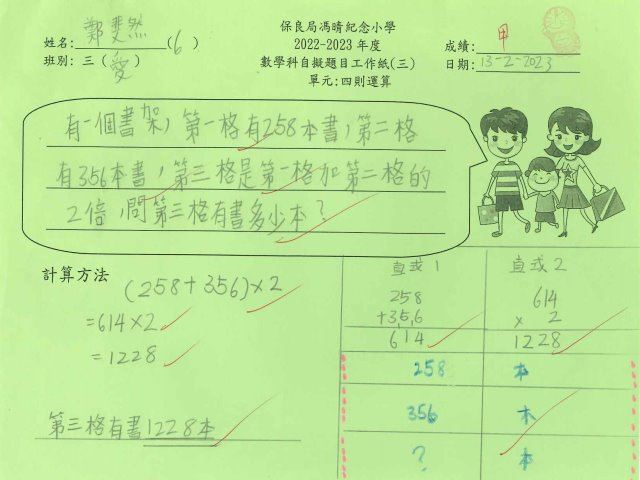 保良局馮晴紀念小學
姓名: 鄭斐然 (6)
2022-2023 年度
成績: 甲
班別: 三 (愛)
數學科自擬題目工作紙(三)
日期: 13-2-2023
單元:四則運算
有一個書架,第一格有258本書,第二格
有356本書,第三格是第一格加第二格的
2倍,問第三格有書多少本?
計算方法
(258+356)×2
=614×2
=1228
第三格有書1228本
直式1
258
+356
614
直式2
614
× 2
1228
258 本
356 本
? 本